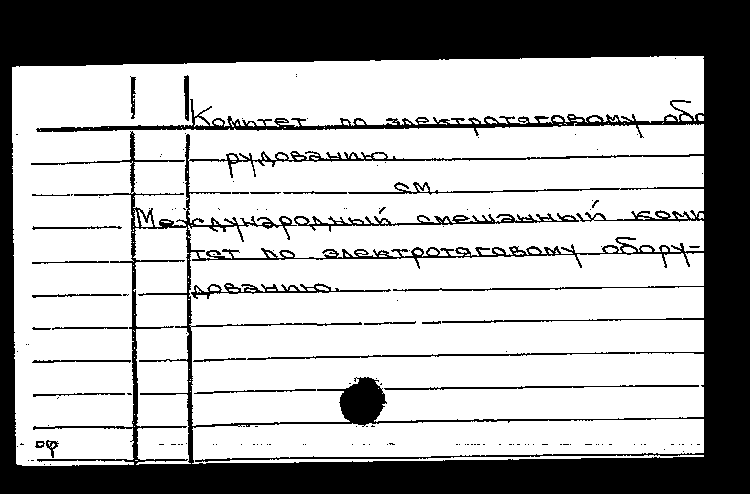 Комитет по электротяговому обо
рудованию.
см.
Международный смешанный коми
тет по электротяговому обору-
дованию.